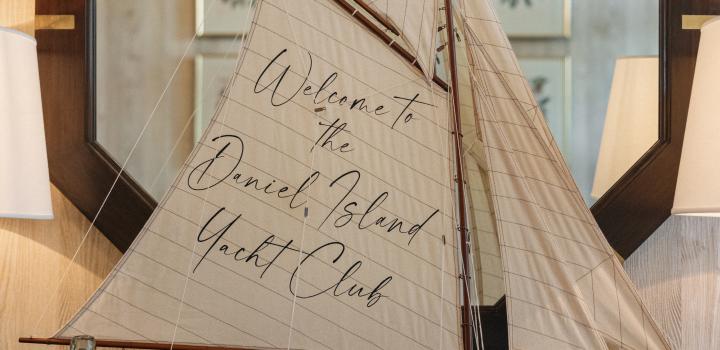 Welcome to
the
Daniel Island
Yacht Club